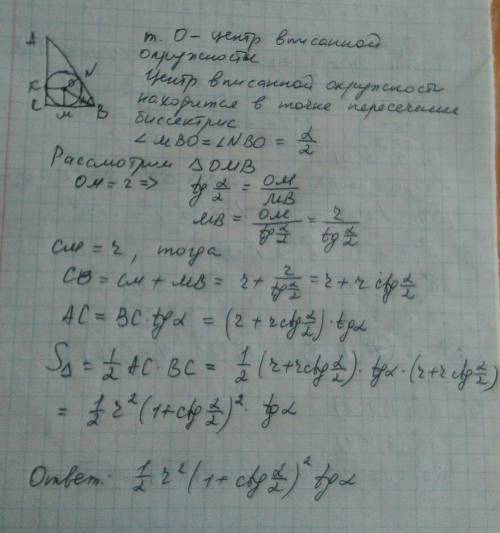 A
K
C
M
B
N
O
т. О - центр вписанной
окружности
Центр вписанной окружности
находится в точке пересечения
биссектрис
∠MBO = ∠NBO = α/2
Рассмотрим △OMB
OM = r => tg α/2 = OM/MB
MB = OM/tg α/2 = r/tg α/2
CM = r, тогда
CB = CM + MB = r + r/tg α/2 = r + r ctg α/2
AC = BC · tg α = (r + r ctg α/2) · tg α
S△ = 1/2 AC · BC = 1/2 (r + r ctg α/2) · tg α · (r + r ctg α/2)
= 1/2 r² (1 + ctg α/2)² · tg α
Ответ: 1/2 r² (1 + ctg α/2)² tg α